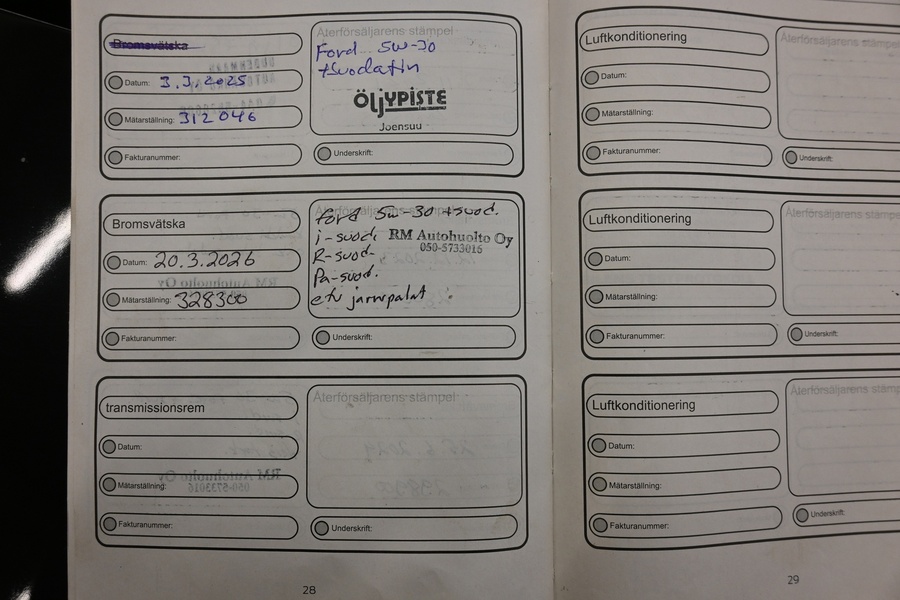 Bromsvätska
Återförsäljarens stämpel
Ford 5W-30
+suodatin
Datum: 3.3.2025
Mätarställning: 312046
ÖljYPISTE
Joensuu
Fakturanummer:
Underskrift:
Bromsvätska
Återförsäljarens stämpel
Ford 5W-30 +suod.
i-suod.
RM Autohuolto Oy
050-5733016
R-suod.
Pa-suod.
etu jarrupalat
Datum: 20.3.2026
Mätarställning: 328300
Fakturanummer:
Underskrift:
transmissionsrem
Återförsäljarens stämpel
Datum:
Mätarställning:
Fakturanummer:
Underskrift:
28
Luftkonditionering
Återförsäljarens stämpe
Datum:
Mätarställning:
Fakturanummer:
Underskrift:
Luftkonditionering
Återförsäljarens stämpe
Datum:
Mätarställning:
Fakturanummer:
Underskrift:
Luftkonditionering
Återförsäljarens stämp
Datum:
Mätarställning:
Fakturanummer:
Underskrift:
29